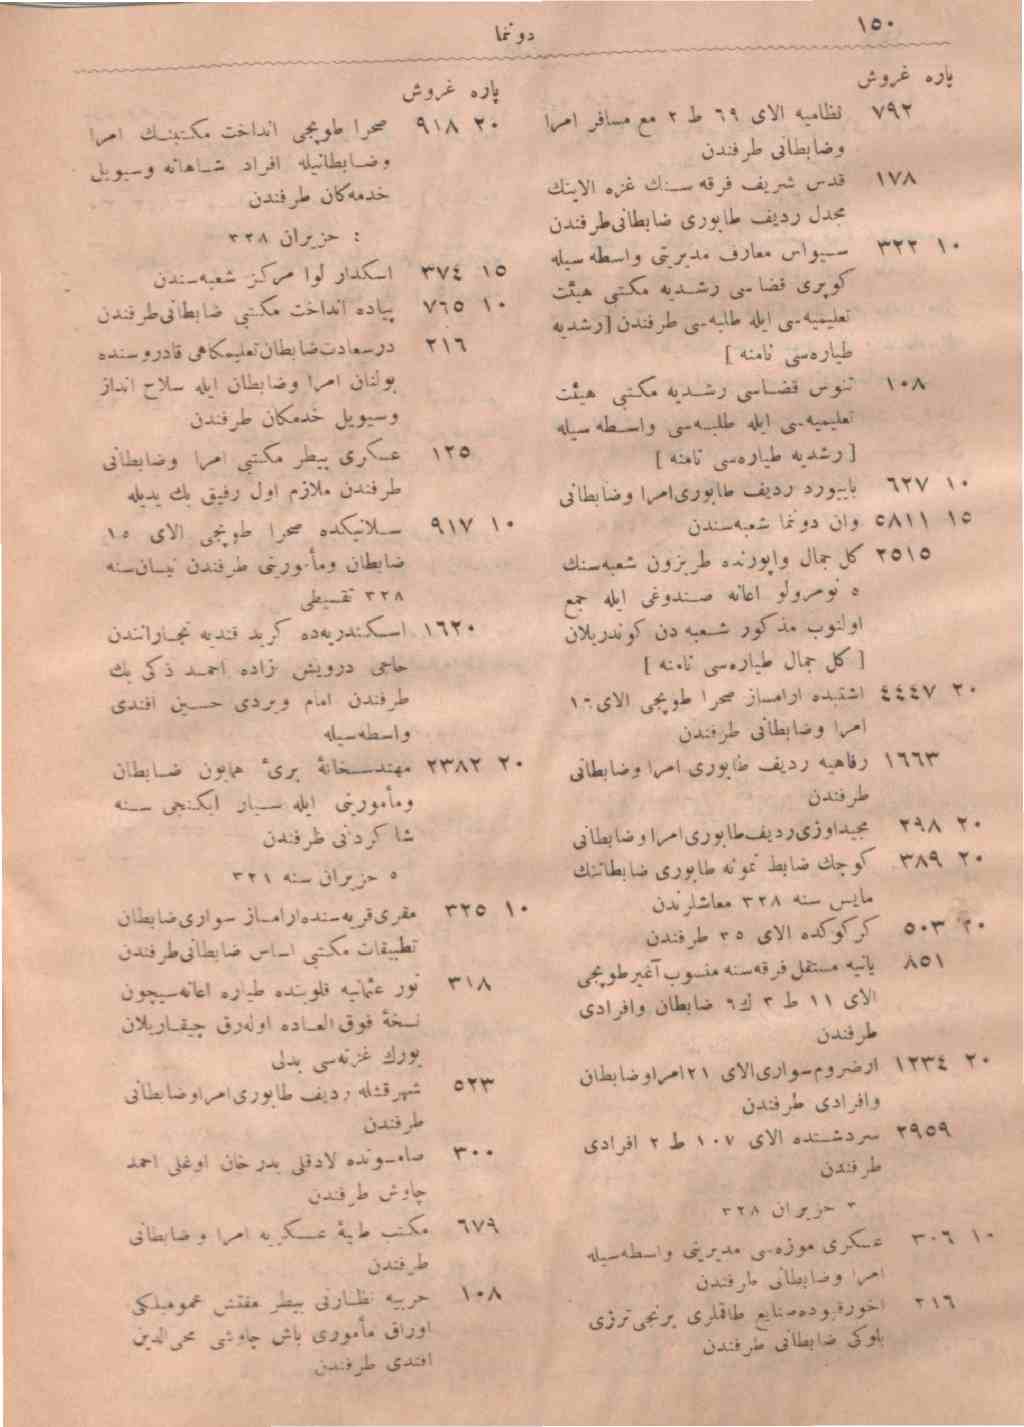 ١٥٠
دوننما
پاره غروش
٧٩٢ نظاميه الاى ٦٩ ط ٢ مع مسافر امرا
وضابطانى طرفندن
١٧٨ قدس شريف فرقه سنك غزه الاينك
مجدل رديف طابورى ضابطانى طرفندن
١٠ ٣٢٢ سيواس معارف مديريتى واسطه سيله
كوپرى قضاسى رشديه مكتبى هيئت
تعليميه سى ايله طلبه سى طرفندن [رشديه
طياره سى نامنه ]
١٠٨ تنوس قضاسى رشديه مكتبى هيئت
تعليميه سى ايله طلبه سى واسطه سيله
[ رشديه طياره سى نامنه ]
١٠ ٦٢٧ بايبورد رديف طابورى امرا وضابطانى
١٥ ٥٨١١ وان دوننما شعبه سندن
٢٥١٥ كل جمال واپورنده طربزون شعبه سنك
٥ نومرولو اعانه صندوغى ايله جمع
اولنوب مذكور شعبه دن كوندريلان
[ كل جمال طياره سى نامنه ]
٢٠ ٤٤٤٧ اشتبده ارامساز صحرا طوپجى الاى ١٦
امرا وضابطانى طرفندن
١٦٦٣ رفاهيه رديف طابورى امرا وضابطانى
طرفندن
٢٠ ٢٩٨ مجيداوزى رديف طابورى امرا وضابطانى
٢٠ ٣٨٩ كوچك ضابط نمونه طابورى ضابطاننك
مايس سنه ٣٢٨ معاشلرندن
٢٠ ٥٠٣ كركوكده الاى ٣٥ طرفندن
٨٥١ يانيه مستقل فرقه سنه منسوب آغير طوپجى
الاى ١١ ط ٣ ك ٦ ضابطان وافرادى
طرفندن
٢٠ ١٢٣٤ ارضروم سوارى الاى ٢١ امرا وضابطان
وافرادى طرفندن
٢٩٥٩ سردشتده الاى ١٠٧ ط ٢ افرادى
طرفندن
٣ حزيران ٣٢٨
١٠ ٣٠٦ عسكرى موزه سى مديريتى واسطه سيله
امرا وضابطانى طرفندن
٢١٦ اخورقپوده صنايع طاقملرى برنجى ترزى
بلوكى ضابطانى طرفندن
پاره غروش
٢٠ ٩١٨ صحرا طوپجى انداخت مكتبنك امرا
وضابطانيله افراد شاهانه وسيويل
خدمه كان طرفندن
: حزيران ٣٢٨
١٥ ٣٧٤ اسكدار لوا مركز شعبه سندن
١٠ ٧٦٥ پياده انداخت مكتبى ضابطانى طرفندن
٢١٦ درسعادت ضابطان تعليمكاهى قادروسنده
بولنان امرا وضابطان ايله سلاح انداز
وسيويل خدمكان طرفندن
١٢٥ عسكرى بيطر مكتبى امرا وضابطانى
طرفندن ملازم اول رفيق بك يديله
١٠ ٩١٧ سلانيكده صحرا طوپجى الاى ١٥
ضابطان ومأمورينى طرفندن نيسان سنه
٣٢٨ تقسيطى
١٦٢٠ اسكندريه ده كريد قنديه تجاراتندن
حاجى درويش زاده احمد ذكى بك
طرفندن امام ويردى حسين افندى
واسطه سيله
٢٠ ٢٣٨٢ مهندسخانهٔ برىٔ همايون ضابطان
ومأمورينى ايله سيار ايكنجى سنه
شاكردانى طرفندن
٥ حزيران سنه ٣٢١
١٠ ٣٢٥ مقرى قريه سنده ارامساز سوارى ضابطان
تطبيقات مكتبى اساس ضابطانى طرفندن
٣١٨ نور عثمانيه قلوبنده طياره اعانه سيچون
نسخهٔ فوق العاده اوله رق چيقاريلان
يورك غزته سى بدلى
٥٢٣ شهرقشله رديف طابورى امرا وضابطانى
طرفندن
٣٠٠ صامسونده لادقلى بدرخان اوغلى احمد
چاوش طرفندن
٦٧٩ مكتب طبيهٔ عسكريه امرا وضابطانى
طرفندن
١٠٨ حربيه نظارتى بيطر مفتش عموميلكى
اوراق مأمورى باش چاوشى محى الدين
افندى طرفندن